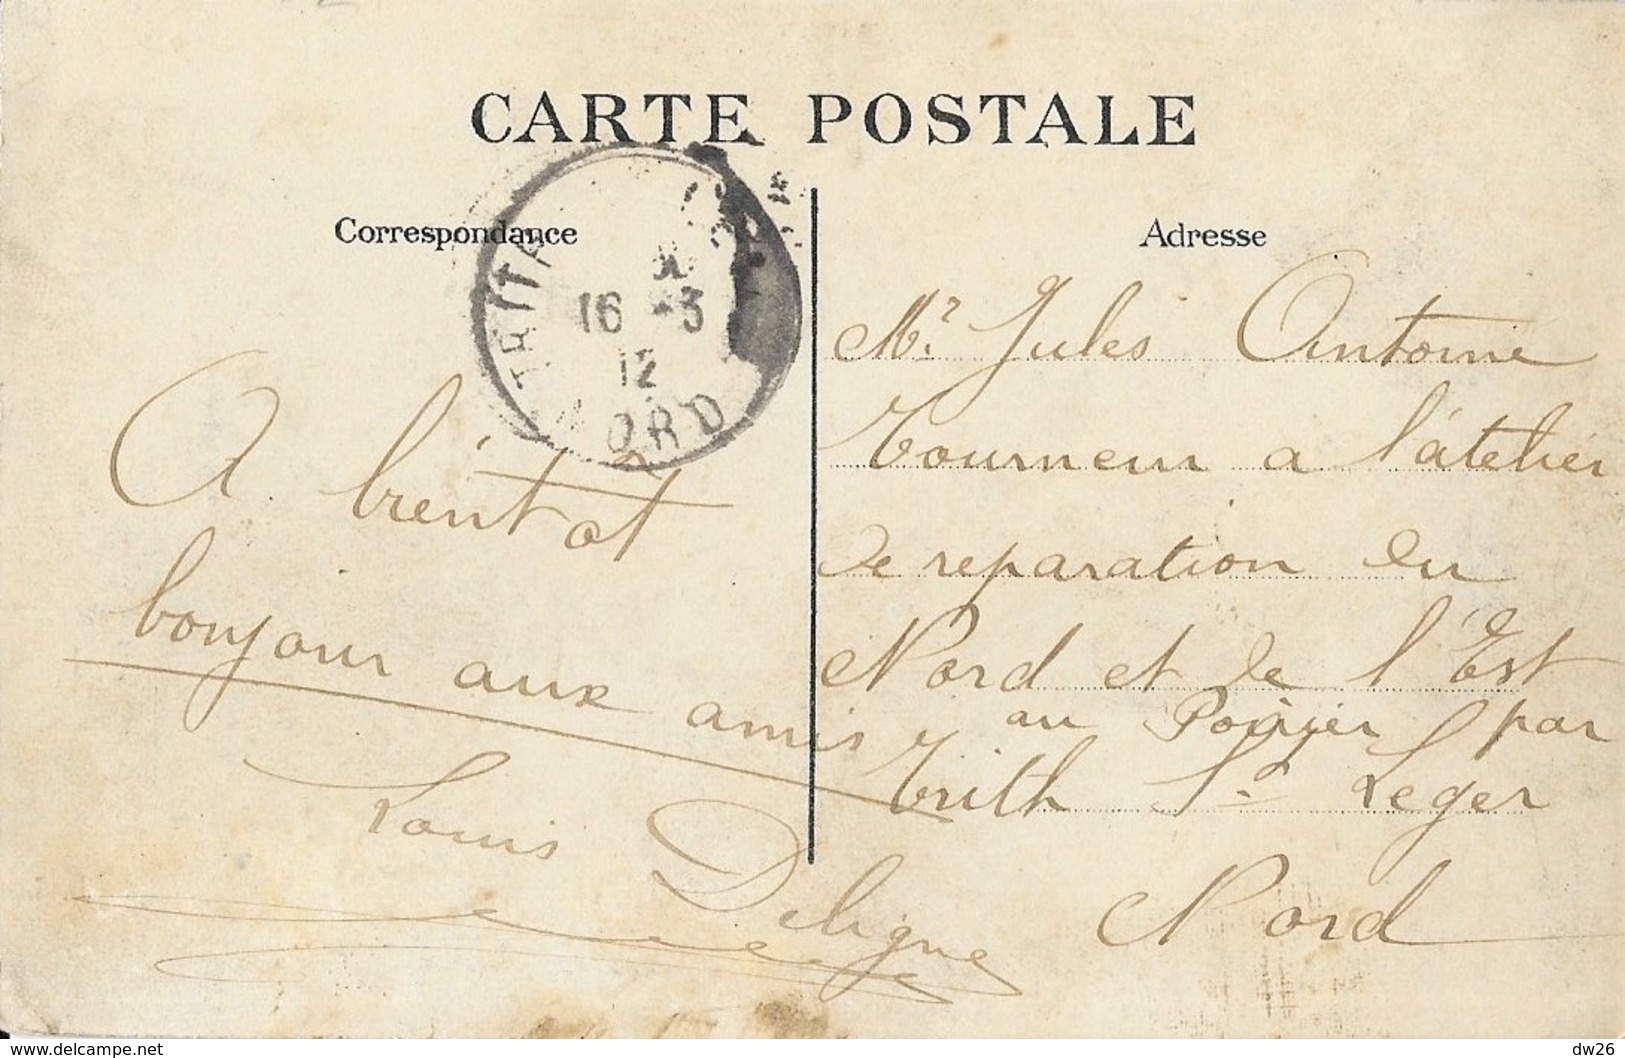 CARTE POSTALE
Correspondance
TRITH
16 -3
12
NORD
A bientot
bonjour aux amis
Louis Deligne
Adresse
Mr. Jules Antoine
Tourneur a l'atelier
de reparation du
Nord et de l'Est
au Poirier par
Trith St Leger
Nord
www.delcampe.net
dw26